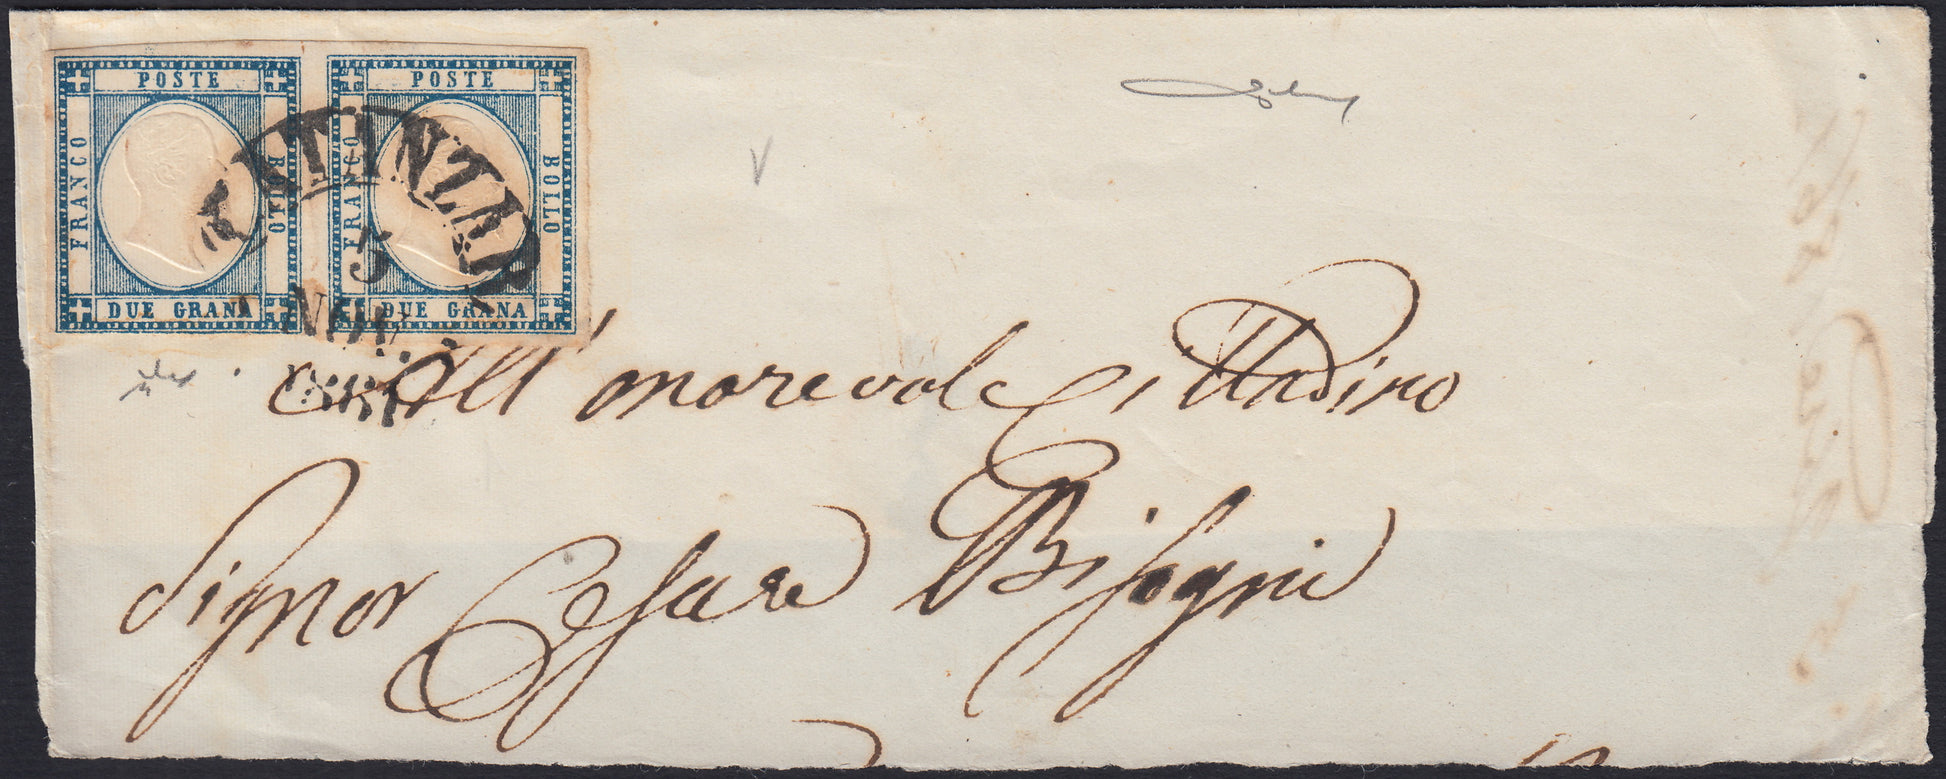 POSTE POSTE
FRANCO BOLLO FRANCO BOLLO
DUE GRANA DUE GRANA
CATANZARO
5
NOV.
1861
All'onorevole Cittadino
Signor Cesare Bisogni